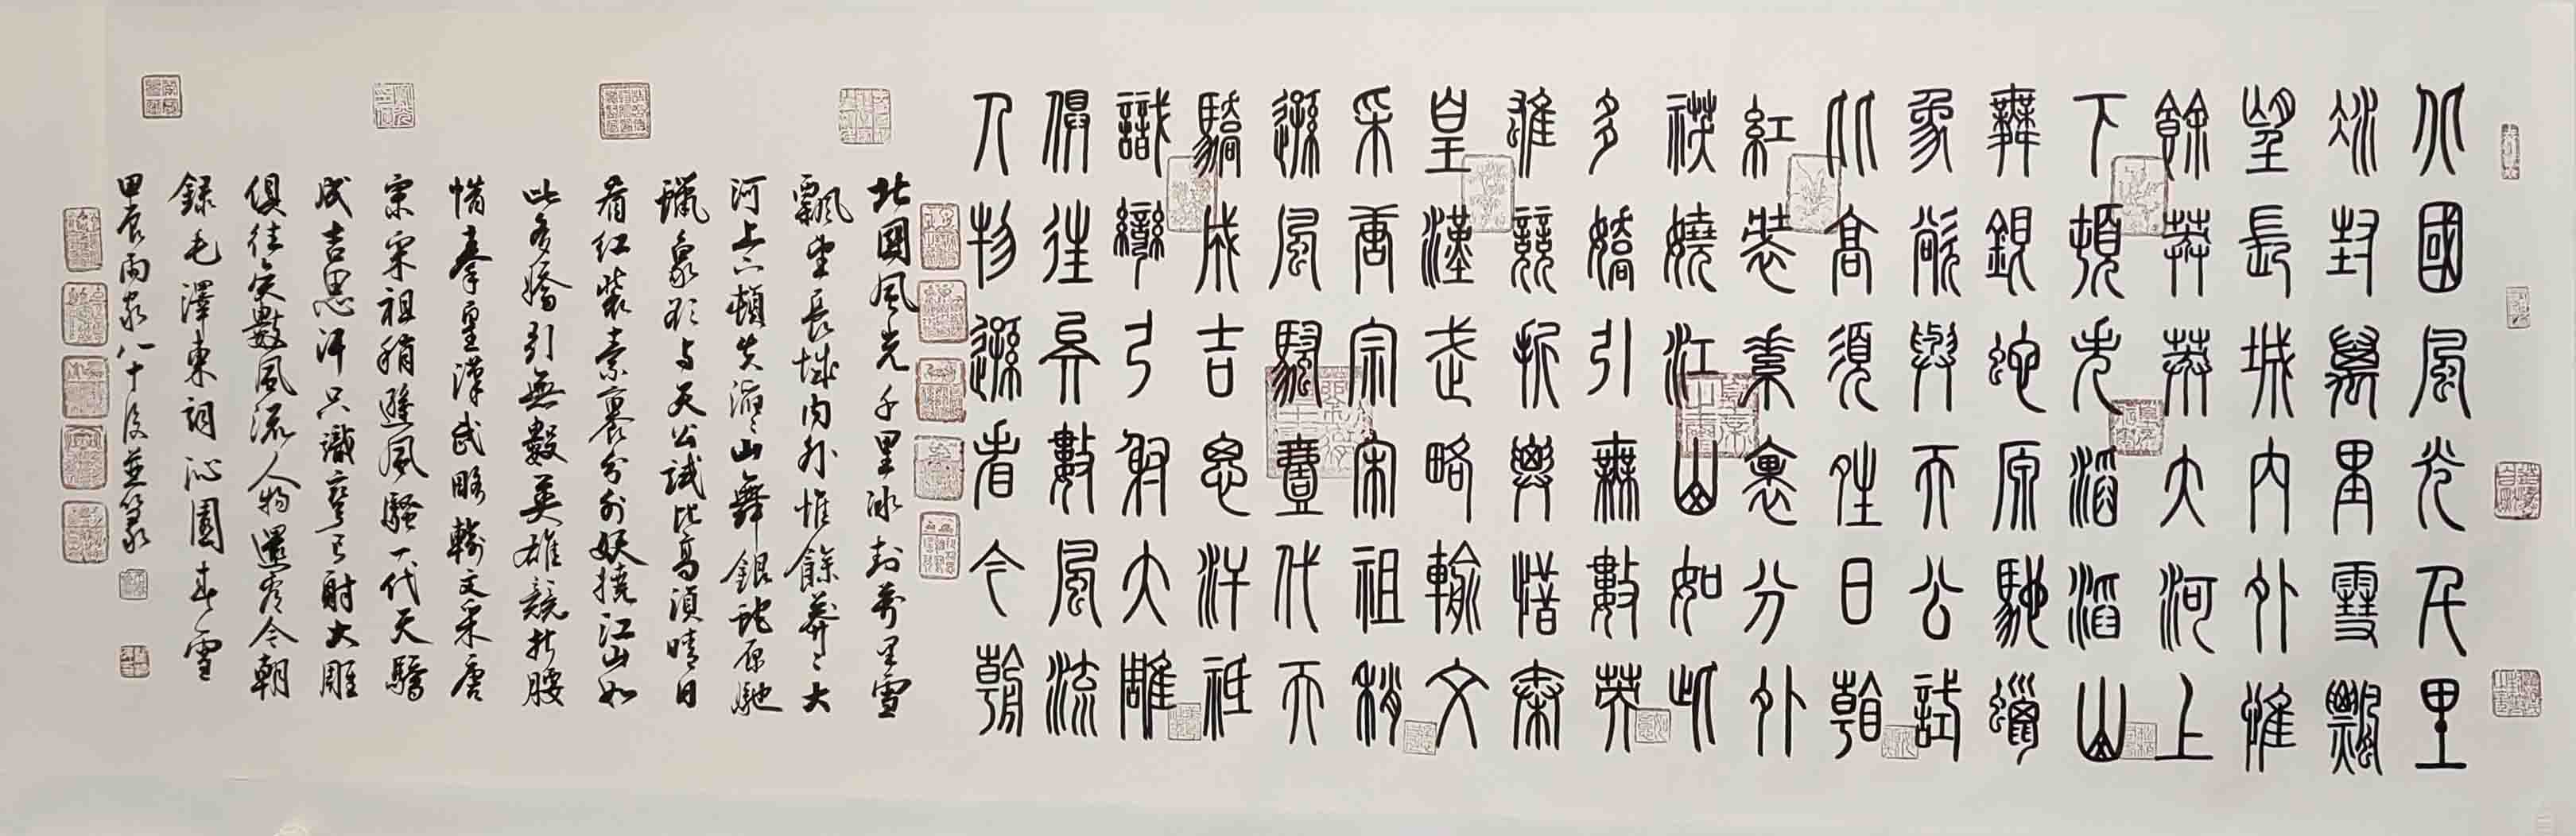 北國風光千里
冰封萬里雪飄
望長城內外惟
餘莽莽大河上
下頓失滔滔山
舞銀蛇原馳蠟
象欲與天公試
比高須晴日看
紅裝素裹分外
妖嬈江山如此
多嬌引無數英
雄競折腰惜秦
皇漢武略輸文
采唐宗宋祖稍
遜風騷一代天
驕成吉思汗祇
識彎弓射大雕
俱往矣數風流
人物還看今朝
北國風光千里冰封萬里雪
飄望長城內外惟餘莽〻大
河上下頓失滔〻山舞銀蛇原馳
蠟象欲与天公試比高須晴日
看红裝素裹分外妖嬈江山如
此多嬌引無數英雄競折腰
惜秦皇漢武略輸文采唐
宗宋祖稍遜風騷一代天驕
成吉思汗只識彎弓射大雕
俱往矣數風流人物還看今朝
錄毛澤東詞沁園春雪
甲辰雨家八十後並篆